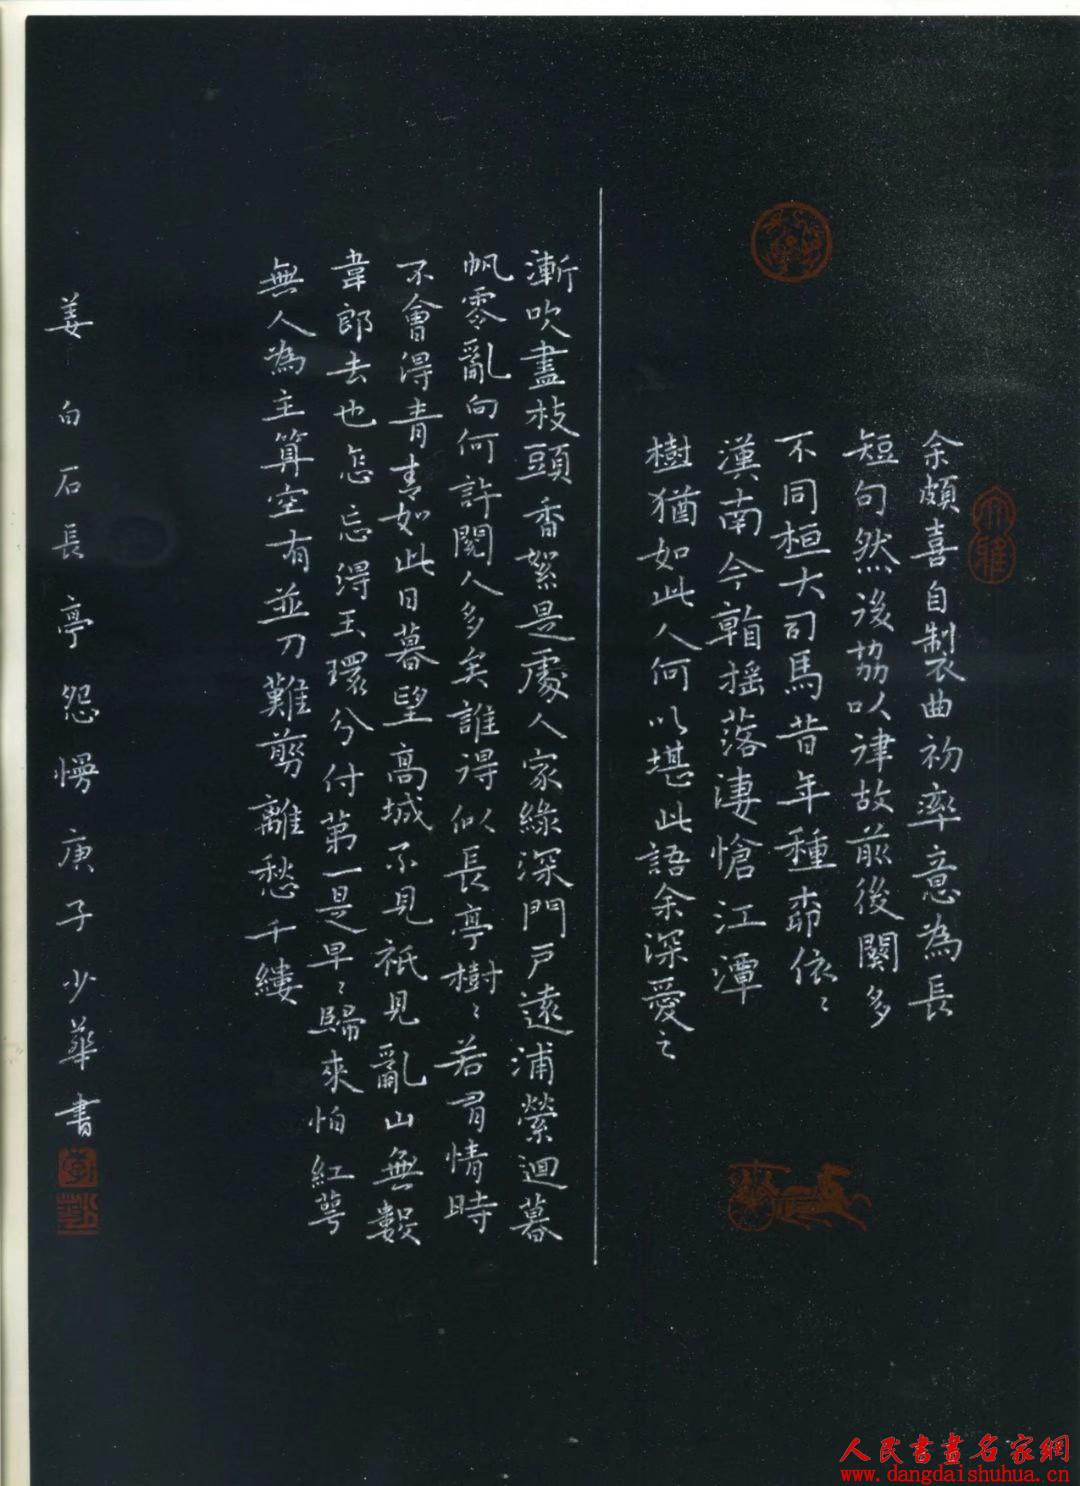 余頗喜自製曲初率意為長
短句然後協以律故前後闋多
不同桓大司馬昔年種桺依〻
漢南今㪚搖落淒愴江潭
樹猶如此人何以堪此語余深愛之
漸吹盡枝頭香絮是處人家綠深門戶遠浦縈迴暮
帆零亂向何許閱人多矣誰得似長亭樹〻若有情時
不會得青青如此日暮望高城不見衹見亂山無數
韋郎去也怎忘得玉環分付第一是早〻歸來怕紅萼
無人為主算空有並刀難剪離愁千縷
姜白石長亭怨慢庚子少華書
大雅
人民書畫名家網
www.dangdaishuhua.cn